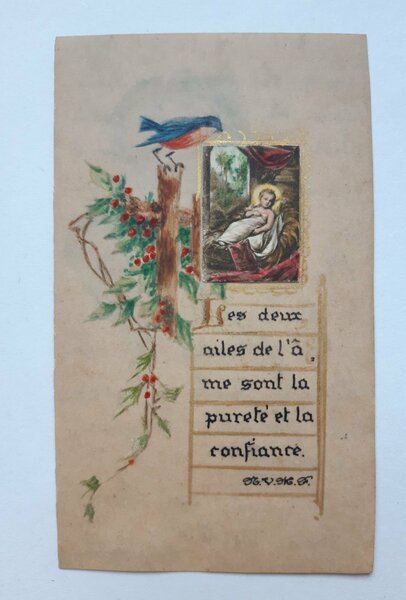 Les deux
ailes de l'â
me sont la
pureté et la
confiance.